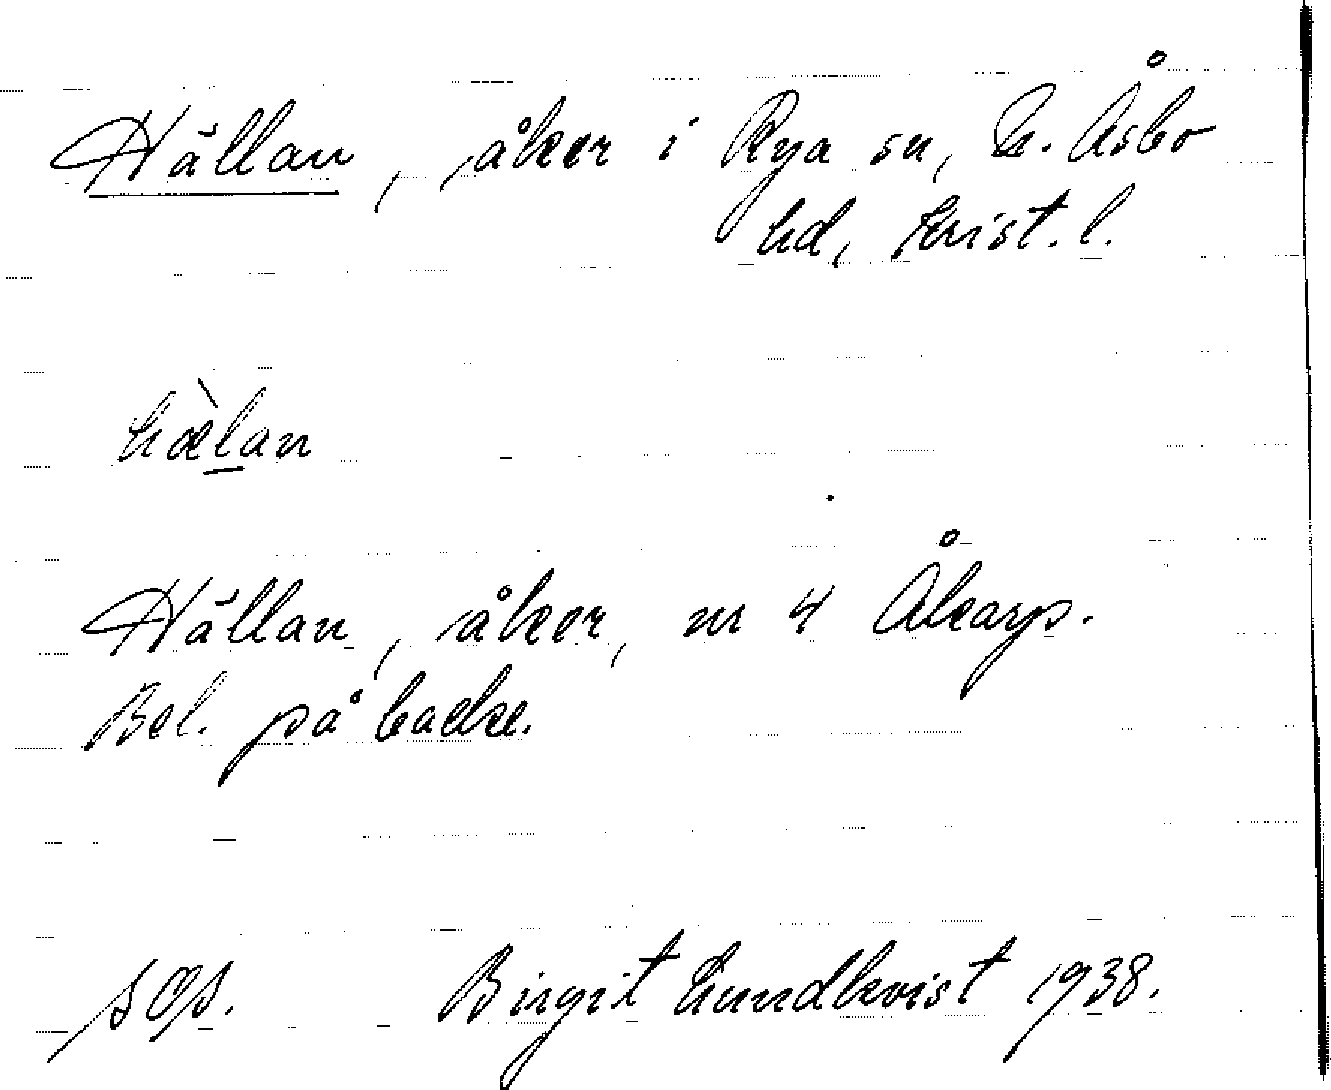 Hällan, åker i Rya sn, N. Åsbo
hd, Krist. l.
hæ̀l̲an
Hällan, åker, nr 4 Åkarp.
Bel. på backe.
Birgit Lundkvist 1938.